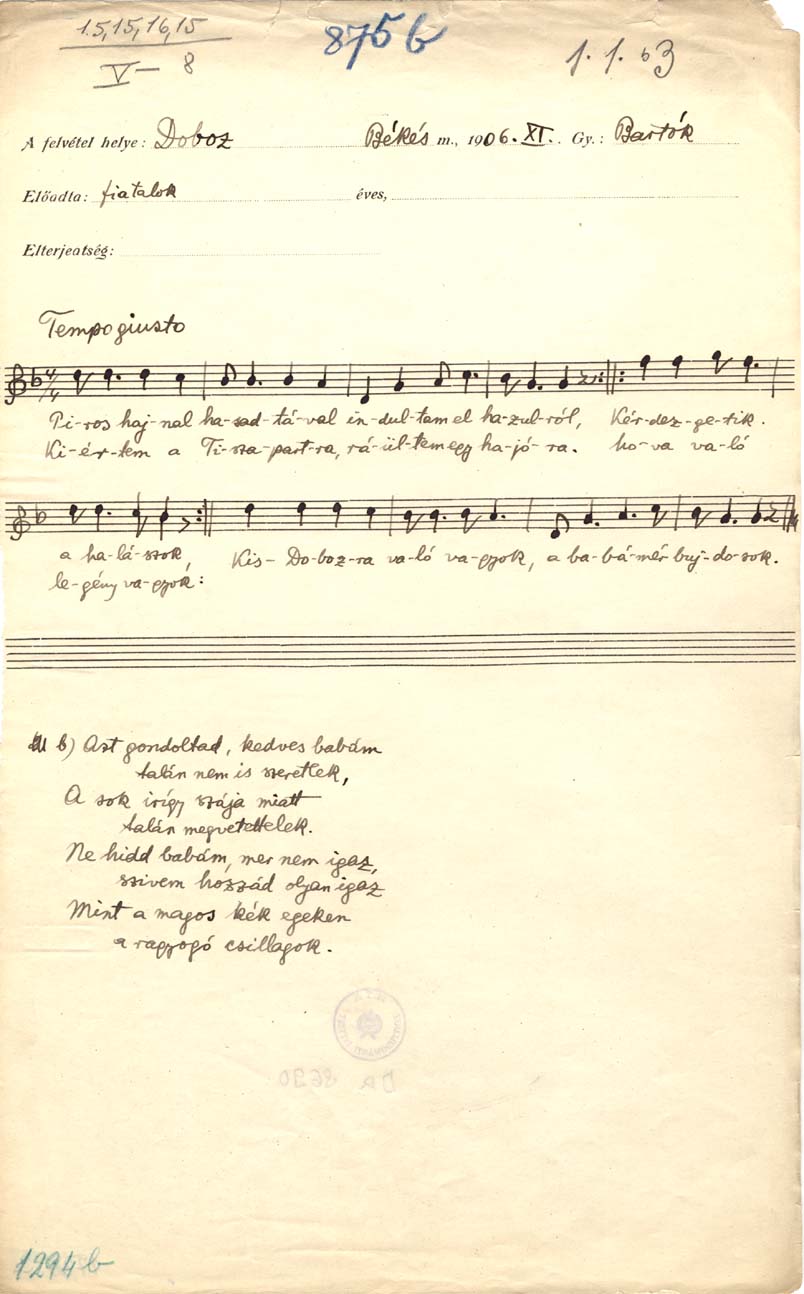 15,15,16,15
V – 8
875 b
1. 1. 63
A felvétel helye: Doboz Békés m., 1906. XI. Gy.: Bartók
Előadta: fiatalok éves,
Elterjedtség:
Tempo giusto
Pi-ros haj-nal ha-sad-tá-val in-dul-tam el ha-zul-ról, Kér-dez-ge-tik.
Ki-ér-tem a Ti-sza-part-ra, rá-ül-tem egy ha-jó-ra. ho-va va-ló
a ha-lá-szok, Kis-Do-boz-ra va-ló va-gyok, a ba-bá-mér buj-do-sok.
le-gény va-gyok:
b) Azt gondoltad, kedves babám
talán nem is szeretlek,
A sok irígy szája miatt
talán megvetettelek.
Ne hidd babám, mer nem igaz,
szivem hozzád olyan igaz
Mint a magos kék egeken
a ragyogó csillagok.
1294 b